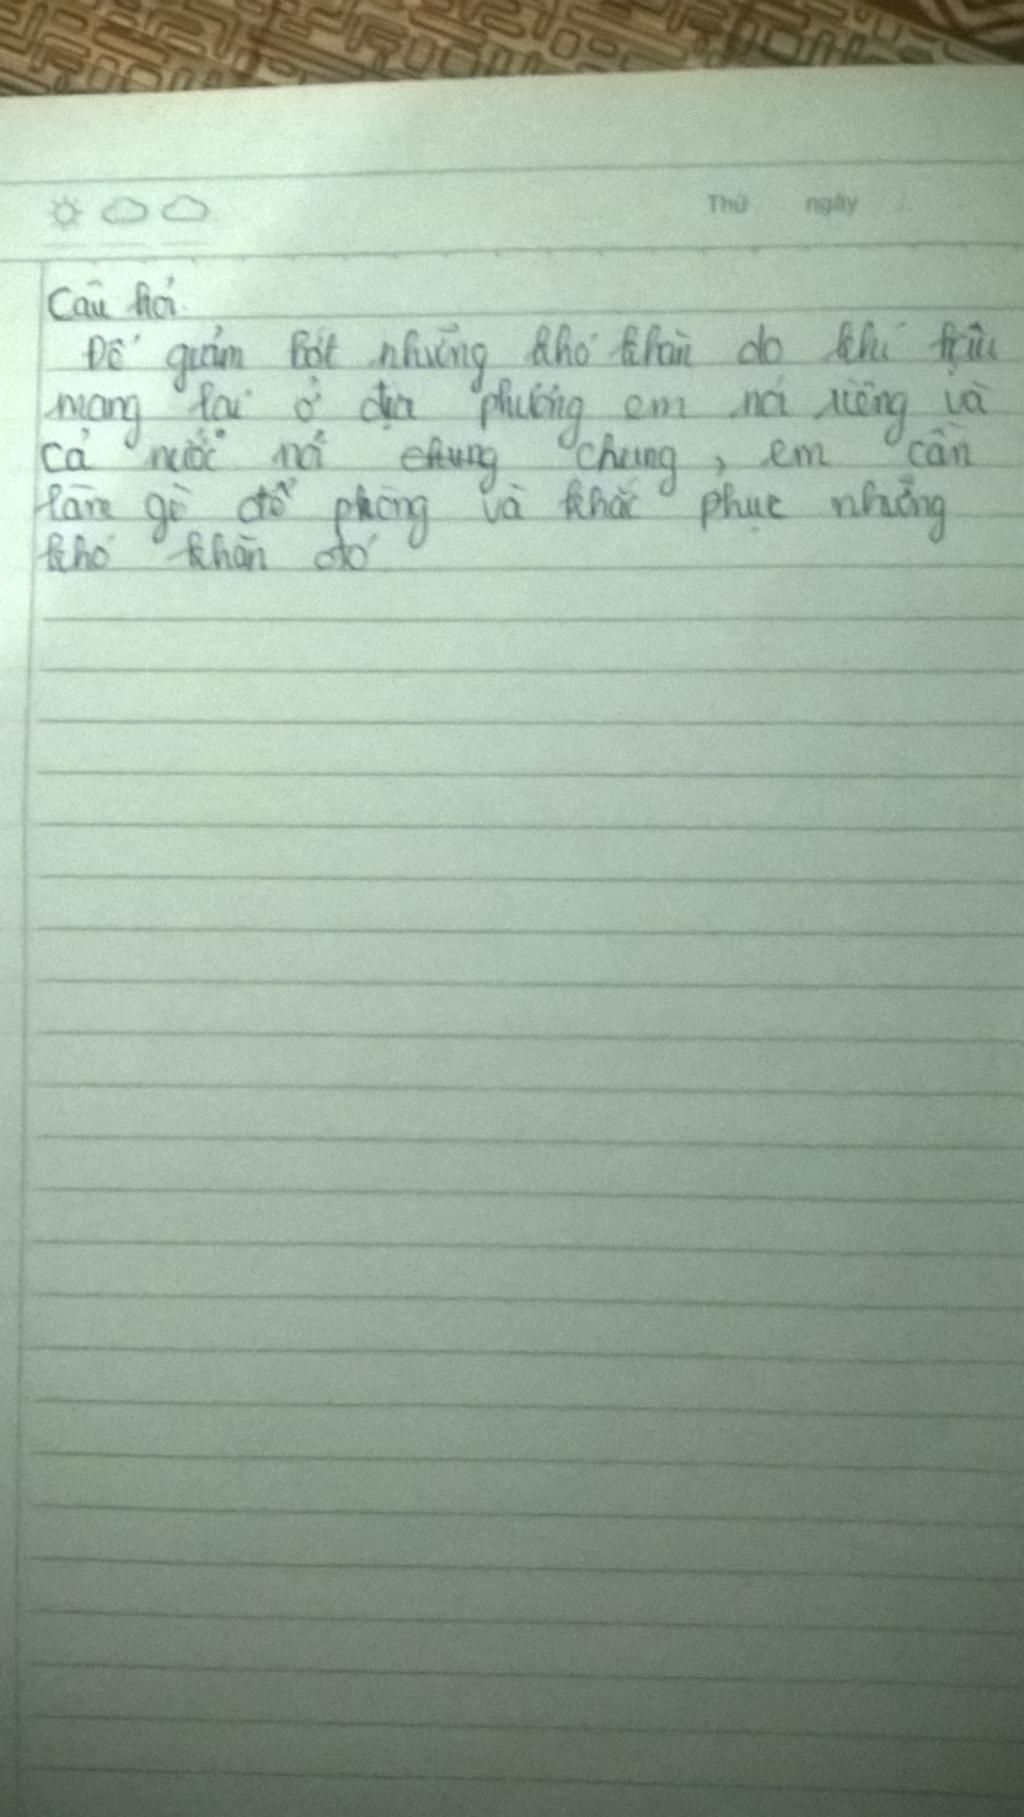 Thứ ngày
Câu hỏi.
Để giảm bớt những khó khăn do khí hậu
mang lại ở địa phương em nói riêng và
cả nước nói chung chung, em cần
làm gì để phòng và khắc phục những
khó khăn đó